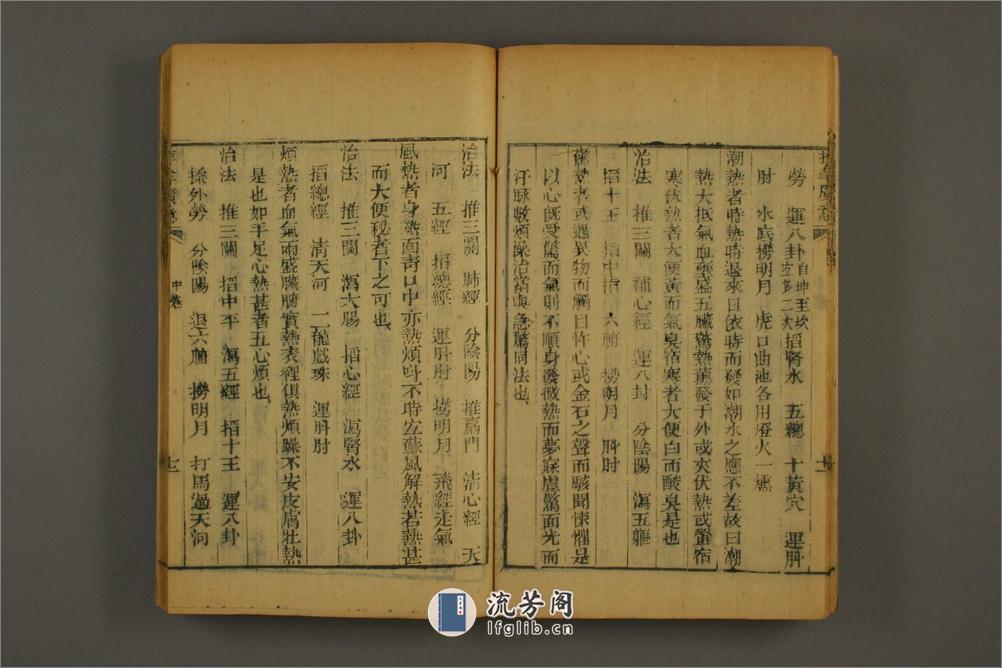 勞　運八卦自坤至坎宜多二次　掐腎水　五總　十黃穴　運䏔
肘　水底撈明月　虎口曲池各用燈火一燋
潮熱者時熱時退來日依時而發如潮水之應不差故曰潮
熱大抵氣血壅盛五臟驚熱薰發于外或夾伏熱或帶宿
寒伏熱者大便黃而氣臭宿寒者大便白而酸臭是也
治法　推三關　補心經　運八卦　分陰陽　瀉五經
掐十王　掐中指　六腑　撈明月　䏔肘
驚熱者或遇異物而觸目忤心或金石之聲而駭聞悚懼是
以心既受驚而氣則不順身發微熱而夢寐虛驚面光而
汗脉數煩躁治當與急驚同法也
治法　推三關　肺經　分陰陽　推扇門　清心經　天
河　五經　掐總經　運䏔肘　撈明月　飛經走氣
風熱者身熱面青口中亦熱煩叫不時宜蘇風解熱若熱甚
而大便秘者下之可也
治法　推三關　瀉大腸　掐心經　瀉腎水　運八卦
掐總經　清天河　二龍戲珠　運䏔肘
煩熱者血氣兩盛臟腑實熱表裡俱熱煩躁不安皮膚壯熱
是也如手足心熱甚者五心煩也
治法　推三關　掐中平　瀉五經　掐十王　運八卦
揉外勞　分陰陽　退六腑　撈明月　打馬過天河
中卷
十二
流芳阁
lfglib.cn